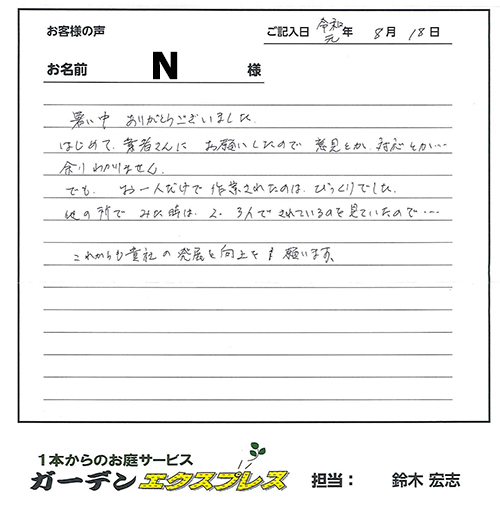 お客様の声
ご記入日 令和元年 8月 18日
お名前 N 様
暑い中 ありがとうございました。
はじめて、業者さんに お願いしたので 意見とか、対応とか…
余りわかりません。
でも、 お一人だけで 作業されたのは、びっくりでした。
他の所で みた時は、2、3人でされているのを見ていたので…
これからも貴社の発展と向上を 願います。
1本からのお庭サービス
ガーデンエクスプレス 担当： 鈴木 宏志